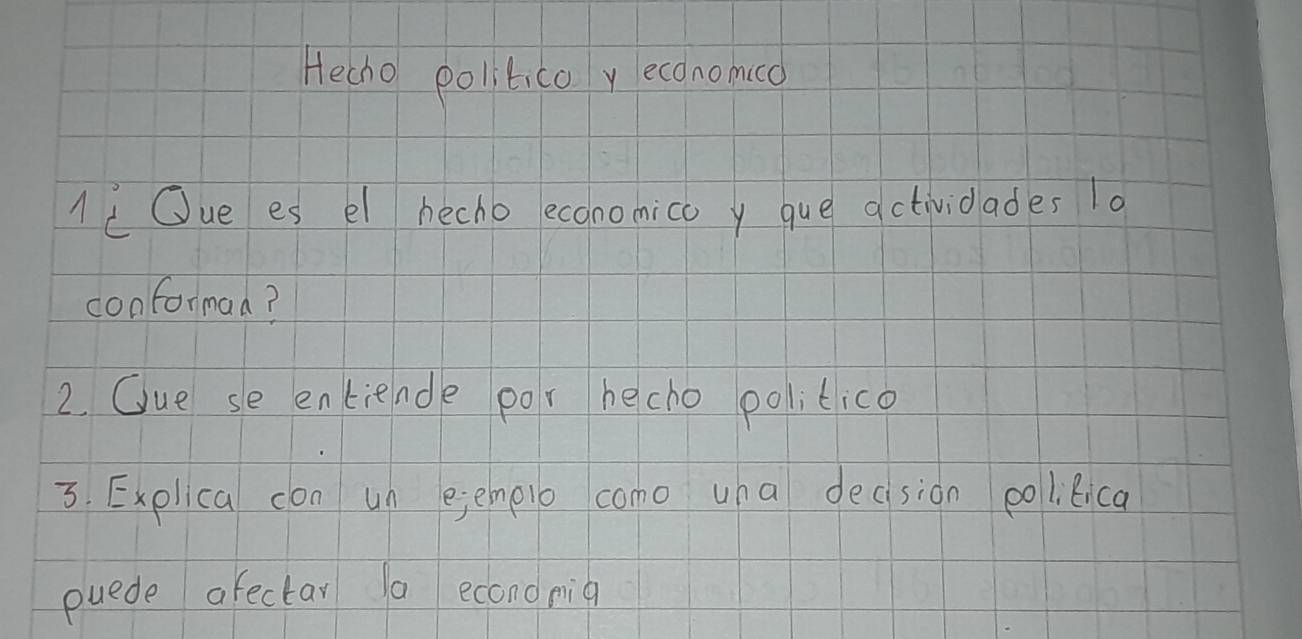 Hecho politico y economico
1 ¿ Que es el hecho economico y que actividades la
conforman?
2. Que se entiende por hecho politico
3. Explica con un ejemplo como una decision politica
puede afectar la economia